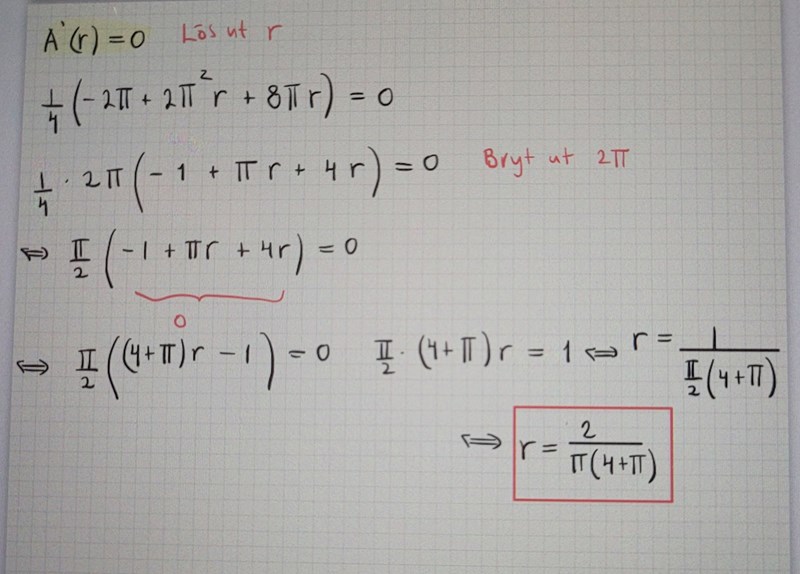 A'(r) = 0 Lös ut r
1/4 (-2π + 2π²r + 8πr) = 0
1/4 · 2π (-1 + πr + 4r) = 0 Bryt ut 2π
⇔ π/2 (-1 + πr + 4r) = 0
0
⇔ π/2 ((4+π)r - 1) = 0 π/2 · (4+π)r = 1 ⇔ r = 1/(π/2 (4+π))
⇔ r = 2/(π(4+π))